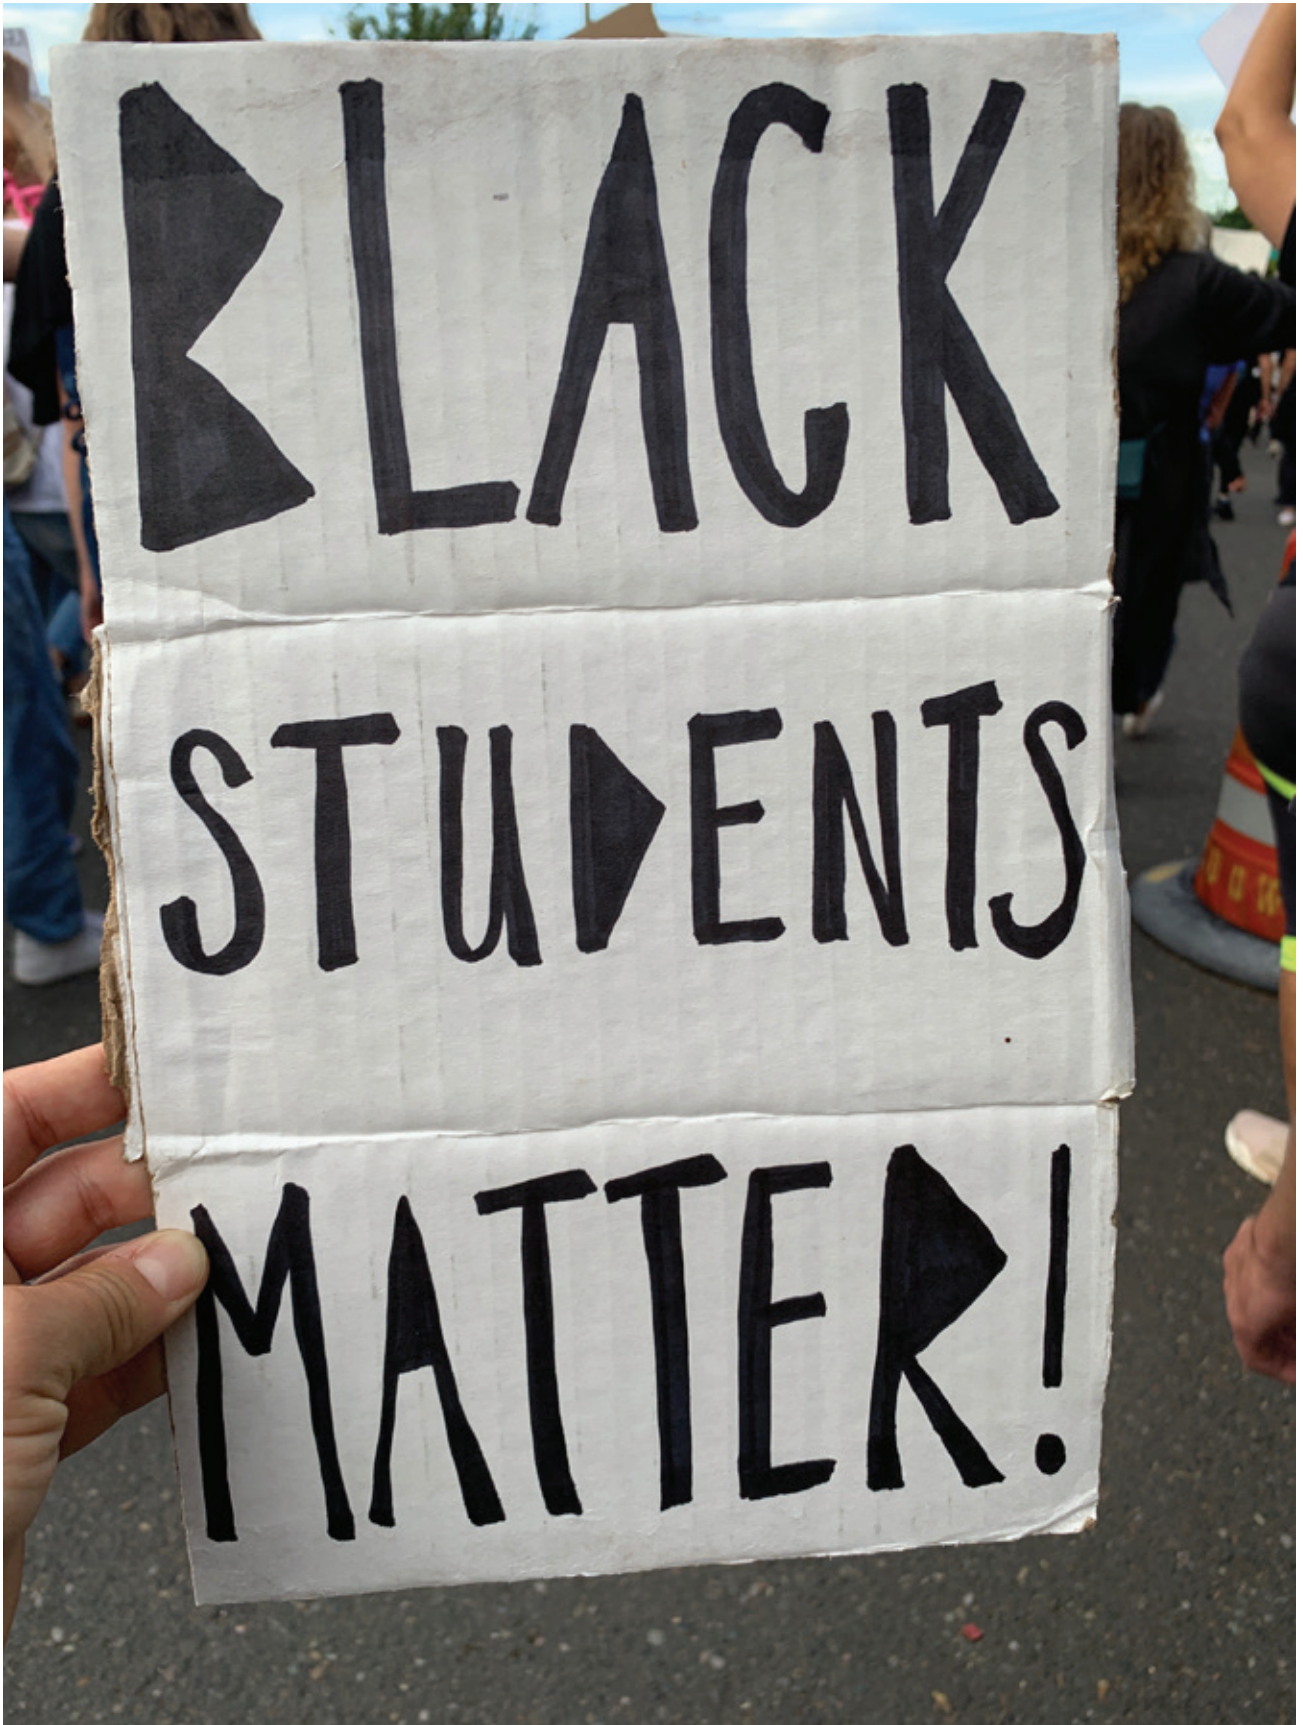 BLACK
STUDENTS
MATTER!